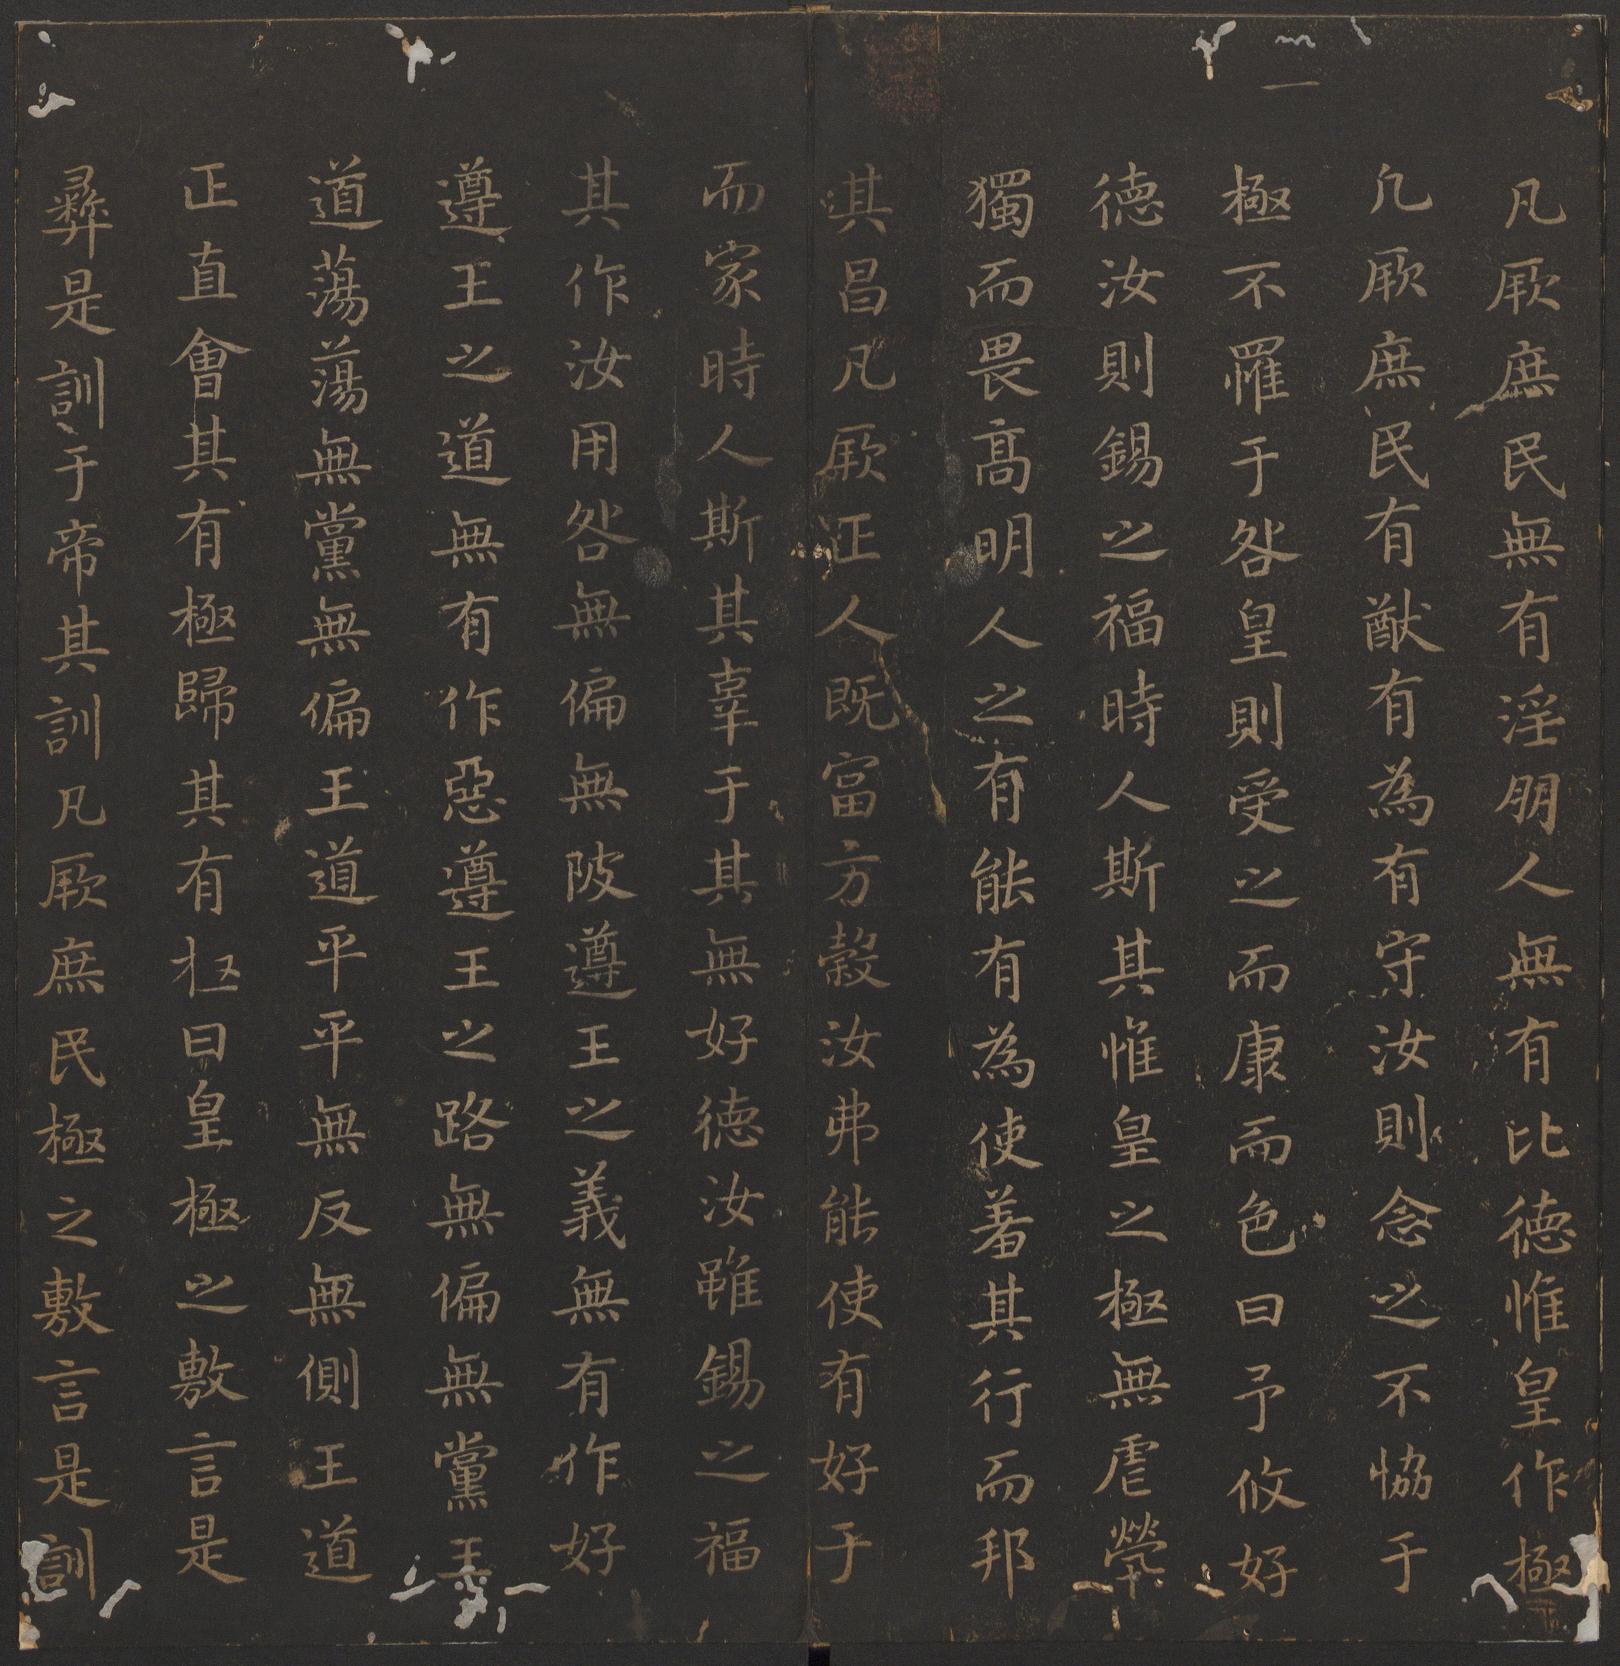 凡厥庶民無有淫朋人無有比徳惟皇作極
凡厥庶民有猷有為有守汝則念之不恊于
極不罹于咎皇則受之而康而色曰予攸好
徳汝則錫之福時人斯其惟皇之極無虐煢
獨而畏高明人之有能有為使羞其行而邦
其昌凡厥正人既富方穀汝弗能使有好于
而家時人斯其辜于其無好徳汝雖錫之福
其作汝用咎無偏無陂遵王之義無有作好
遵王之道無有作惡遵王之路無偏無黨王
道蕩蕩無黨無偏王道平平無反無側王道
正直會其有極歸其有极曰皇極之敷言是
彝是訓于帝其訓凡厥庶民極之敷言是訓